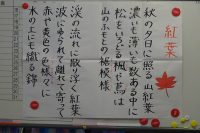 紅葉
秋の夕日に照る山紅葉
濃いも薄いも数ある中に
松をいろどる楓や蔦は
山のふもとの裾模様
渓の流れに散り浮く紅葉
波にゆられて離れて寄って
赤や黄色の色様々に
水の上にも織る錦